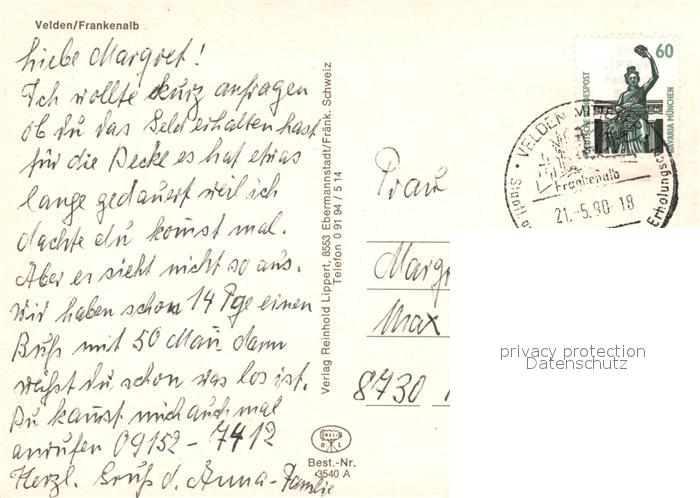 Velden/Frankenalb
Liebe Margret!
Ich wollte kurz anfragen
ob du das Geld erhalten hast
für die Decke es hat etwas
lange gedauert weil ich
dachte du kommst mal.
Aber es sieht nicht so aus.
Wir haben schon 14 Tge einen
Buß mit 50 Man dann
weißt du schon was los ist.
Du kannst mich auch mal
anrufen 09152-7412
Herzl. Gruß d. Anna-Familie
Verlag Reinhold Lippert, 8553 Ebermannstadt/Fränk. Schweiz
Telefon 0 91 94 / 5 14
Best.-Nr.
3540 A
60
DEUTSCHE BUNDESPOST
BAVARIA MÜNCHEN
VELDEN
Frankenalb
21.-5.90-18
Erholungs
Frau
Margr
Max
8730
privacy protection
Datenschutz